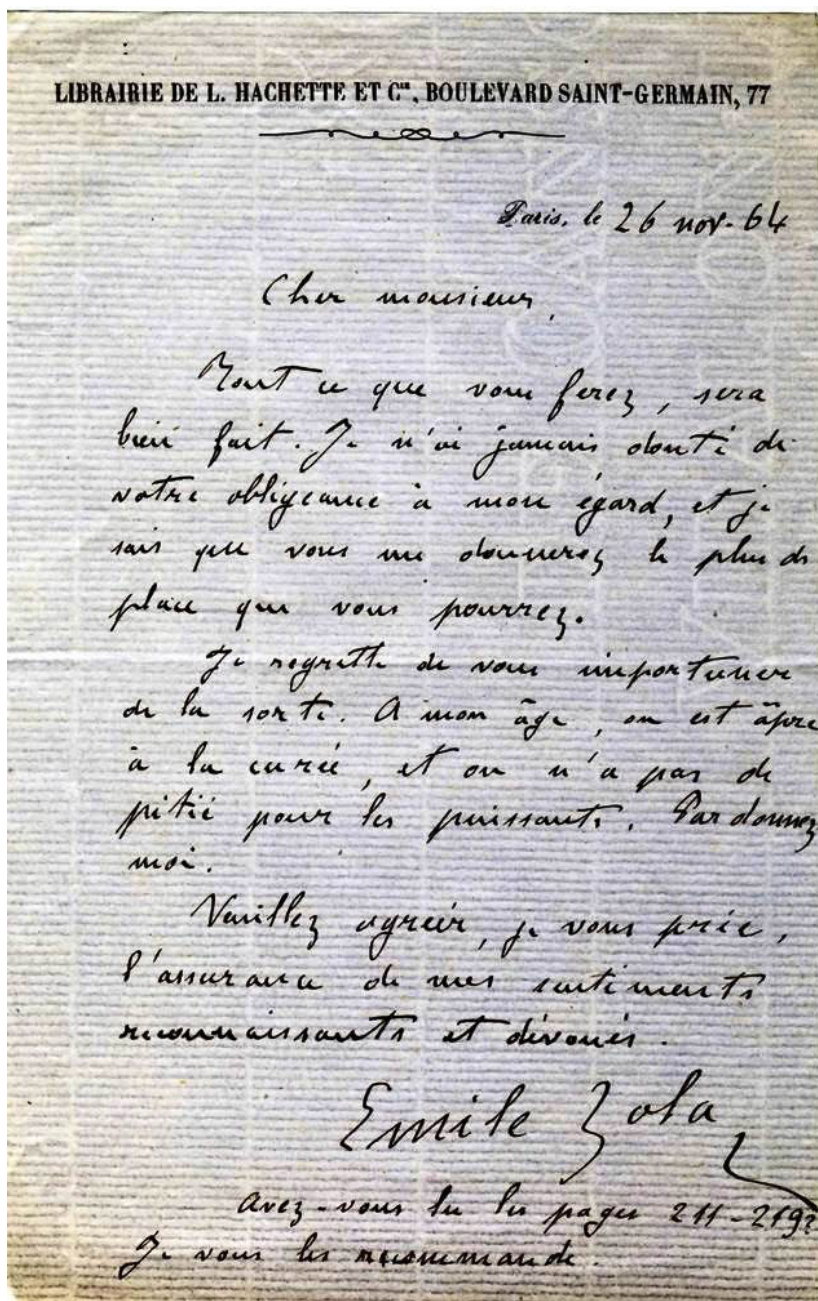 LIBRAIRIE DE L. HACHETTE ET Cie, BOULEVARD SAINT-GERMAIN, 77
Paris, le 26 nov. 64
Cher monsieur,
Tout ce que vous ferez, sera
bien fait. Je n'ai jamais douté de
votre obligeance à mon égard, et je
sais que vous me donnerez le plus de
place que vous pourrez.
Je regrette de vous importuner
de la sorte. A mon âge, on est âpre
à la curée, et on n'a pas de
pitié pour les puissants. Pardonnez
moi.
Veuillez agréer, je vous prie,
l'assurance de mes sentiments
reconnaissants et dévoués.
Emile Zola
Avez-vous lu les pages 211-219?
Je vous les recommande.